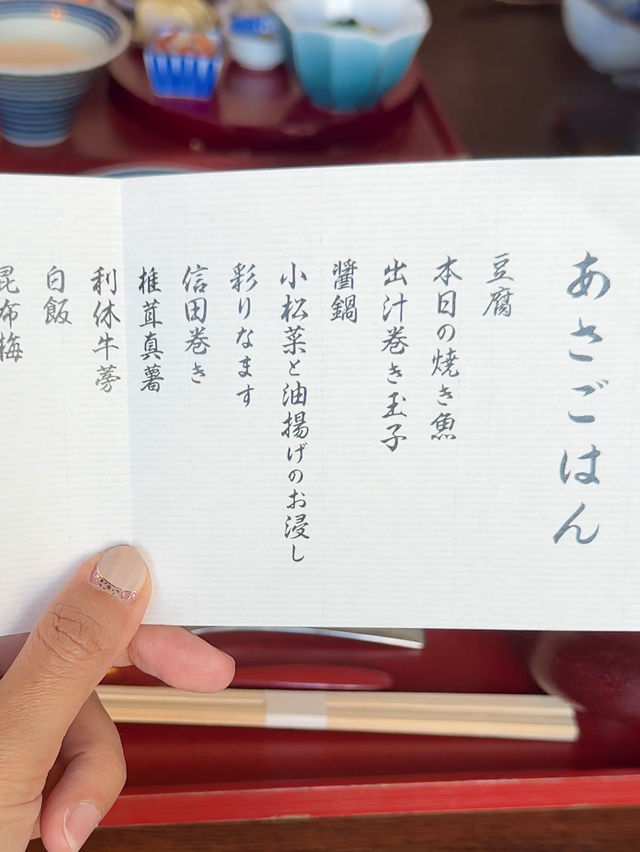 あさごはん
豆腐
本日の焼き魚
出汁巻き玉子
醤鍋
小松菜と油揚げのお浸し
彩りなます
信田巻き
椎茸真薯
利休牛蒡
白飯
昆布梅